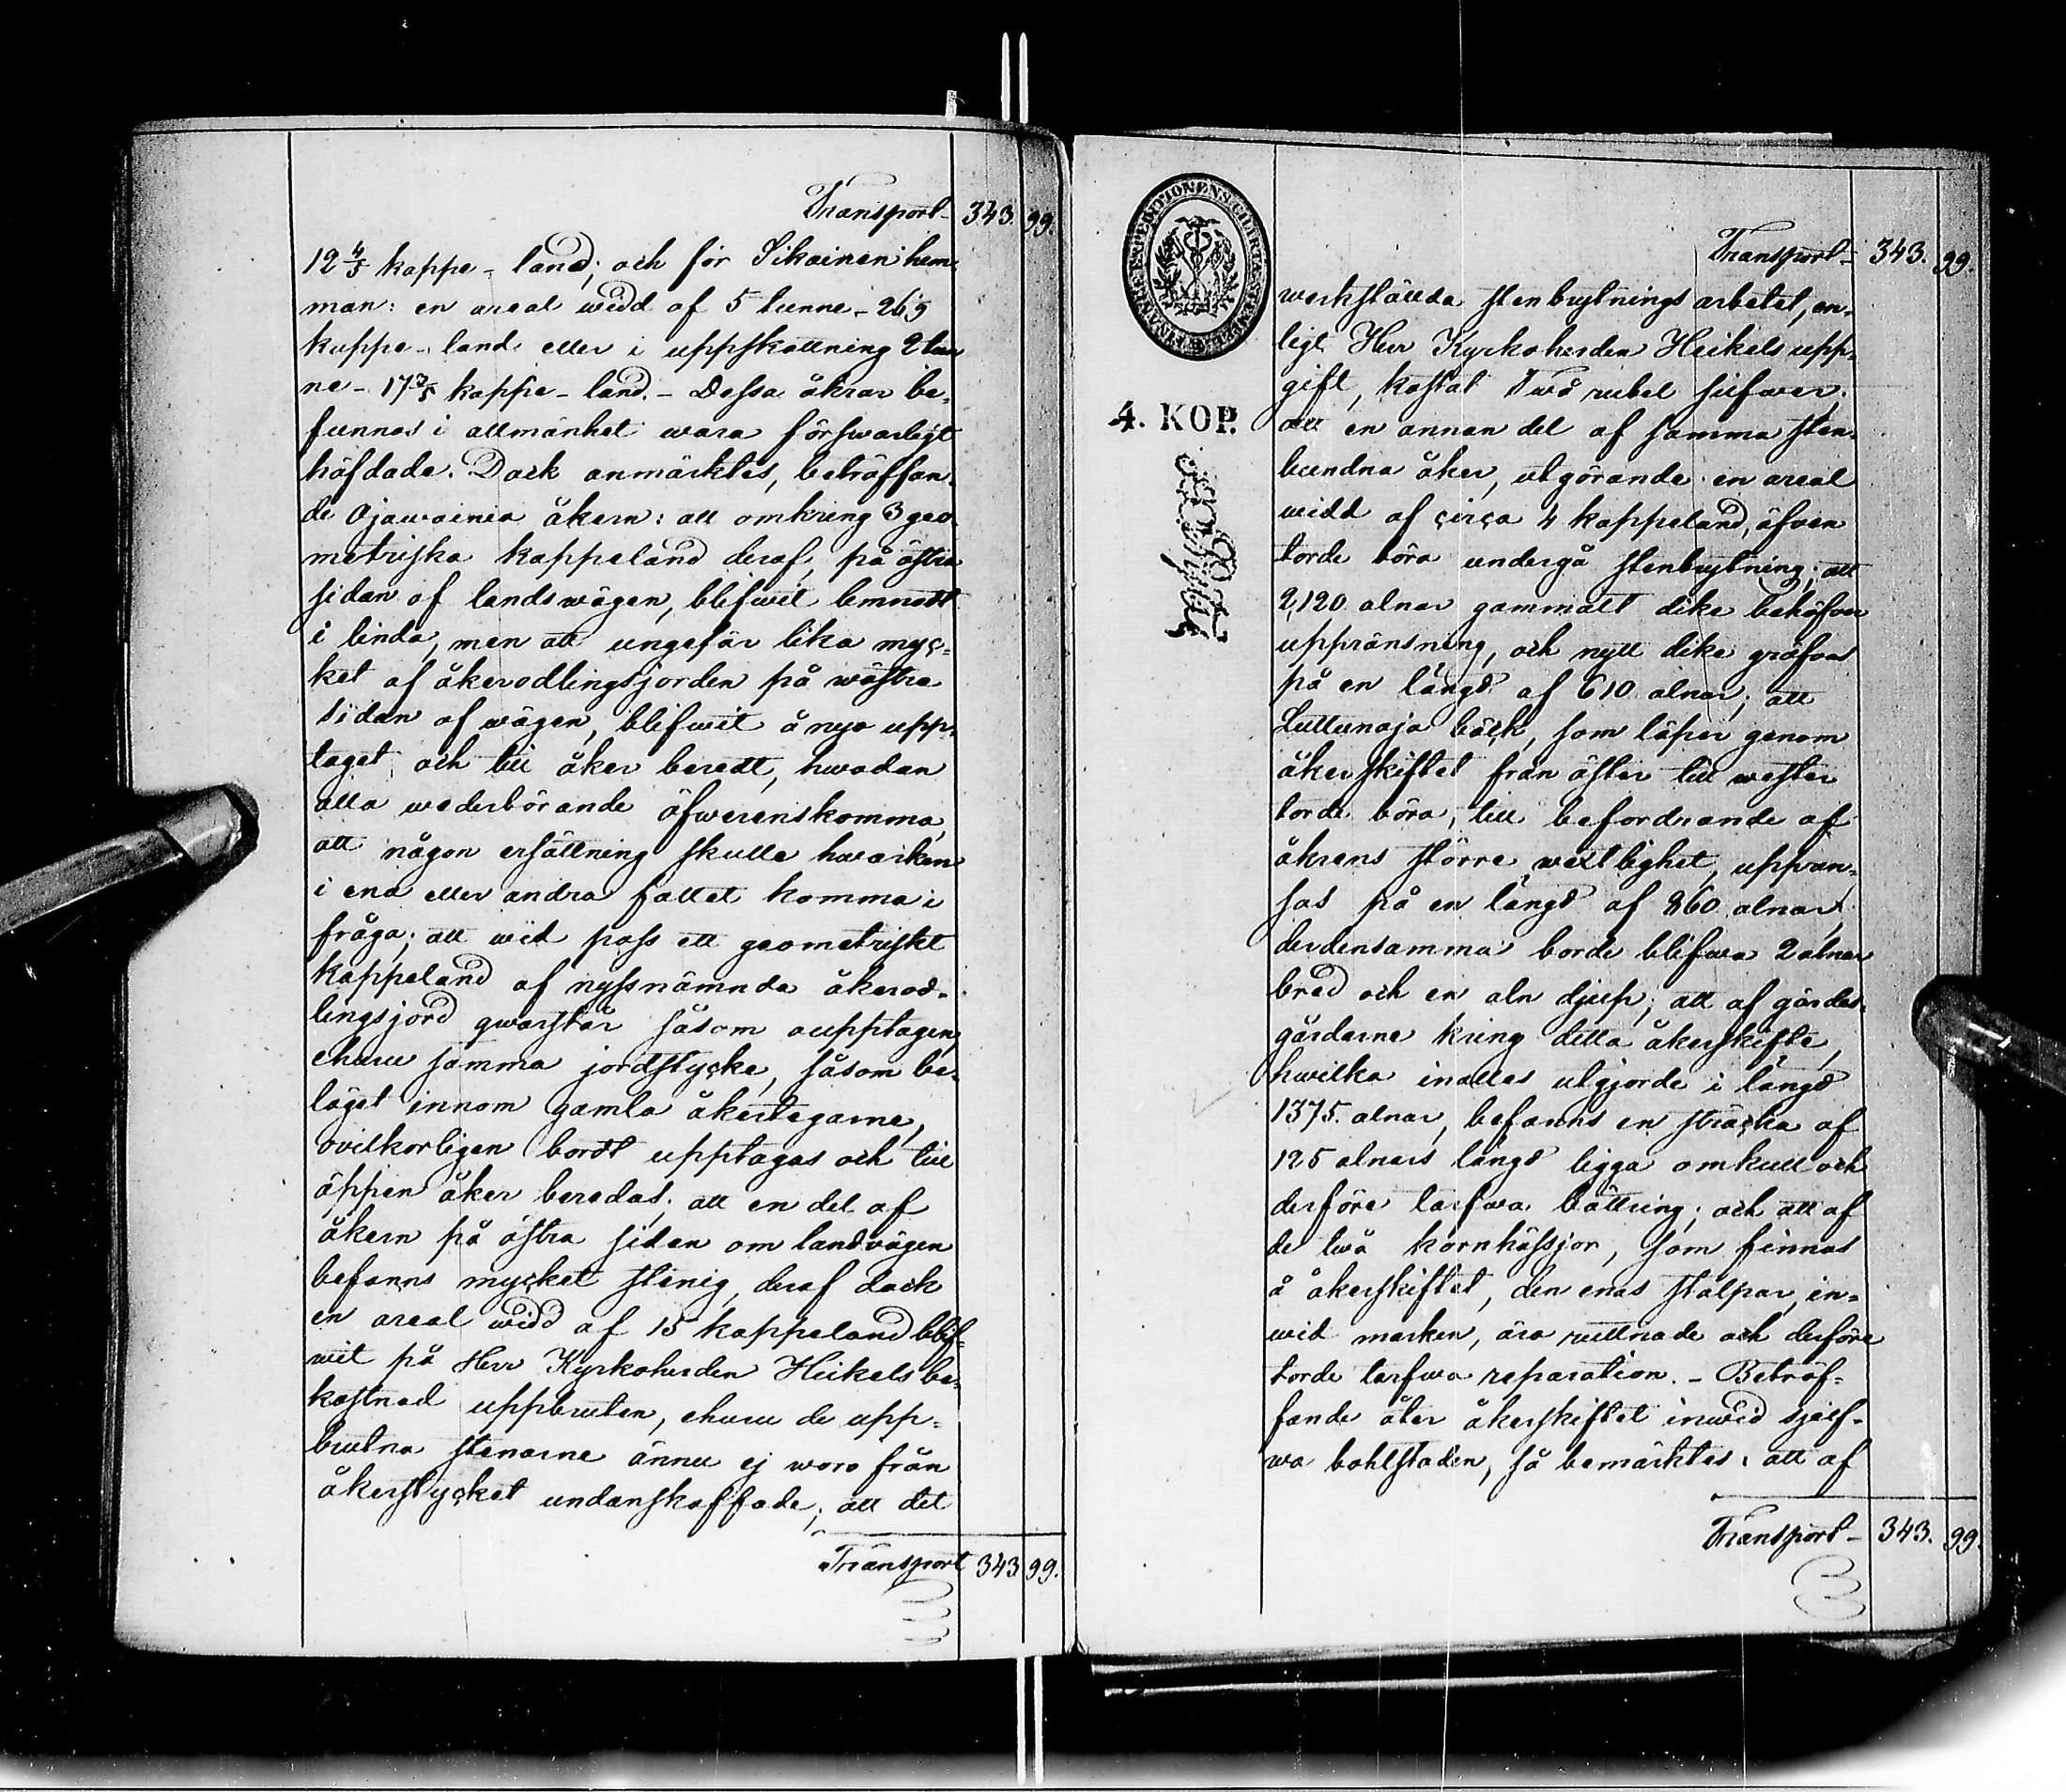 Transport 343. 99.
12 4/5 kappe-land; och för Sikainen hem-
man: en areal widd af 5 tunne- 26,9
kappe-land eller i uppskattning 2 tun
ne- 17 3/5 kappe-land.- Dessa åkrar be-
funnos i allmänhet wara förswarligt
häfdade. Dock anmärktes, beträffan-
de Ojawainen åkern: att omkring 3 geo
metriska kappeland deraf, på östra
sidan af landswägen, blifwit lemnadt
i linda, men att ungefär lika myc-
ket af åkerodlingsjorden på wästra
sidan af wägen, blifwit å nyo upp-
taget och till åker beredt, hwadan
alla wederbörande öfwerenskomma,
att någon ersättning skulle hwarken
i ena eller andra fallet komma i
fråga; att wid pass ett geometriskt
kappeland af nyssnämnda åkerod-
lingsjord qwarstår såsom oupptagen,
ehuru samma jordstycke, såsom be-
läget innom gamla åkertegarne,
ovilkorligen bordt upptagas och till
öppen åker beredas; att en del af
åkern på östra sidan om landvägen
befanns mycket stenig, deraf dock
en areal widd af 15 kappeland blif-
wit på Herr Kyrkoherden Heikels be-
kostnad uppbruten, ehuru de upp-
brutna stenarne ännu ej woro från
åkerstycket undanskaffade; att det
Transport 343 99.
FINANCE EXPEDITIONENS CHARTÆ STEMPEL
4. KOP.
Transport- 343. 99.
werkställda stenbrytnings arbetet, en-
ligt Herr Kyrkoherden Heikels upp-
gift, kostat Två rubel silfwer;
att en annan del af samma sten-
bundna åker, utgörande en areal
widd af circa 4 kappeland, äfven
torde böra undergå stenbrytning; att
2,120 alnar gammalt dike behöfver
uppränsning, och nytt dike gräfvas
på en längd af 610 alnar; att
Luttunoja bäck, som löper genom
åkerskiftet från öster till wester
torde böra, till befordrande af
åkrens större wextlighet, uppran-
sas på en längd af 860 alnar,
der densamma borde blifwa 2 alnar
bred och en aln djup; att af gärdes-
gårdarne kring detta åkerskifte,
hwilka inalles utgjorde i längd
1375. alnar, befanns en sträcka af
125 alnars längd ligga omkull och
derföre tarfwa bättring; och att af
de twå kornhässjor, som finnas
å åkerskiftet, den enas stolpar, in-
wid marken, äro ruttnade och derföre
torde tarfwa reparation.- Beträf-
fande åter åkerskiftet inwid sjelf-
wa bohlstaden, så bemärktes: att af
Transport- 343. 99.